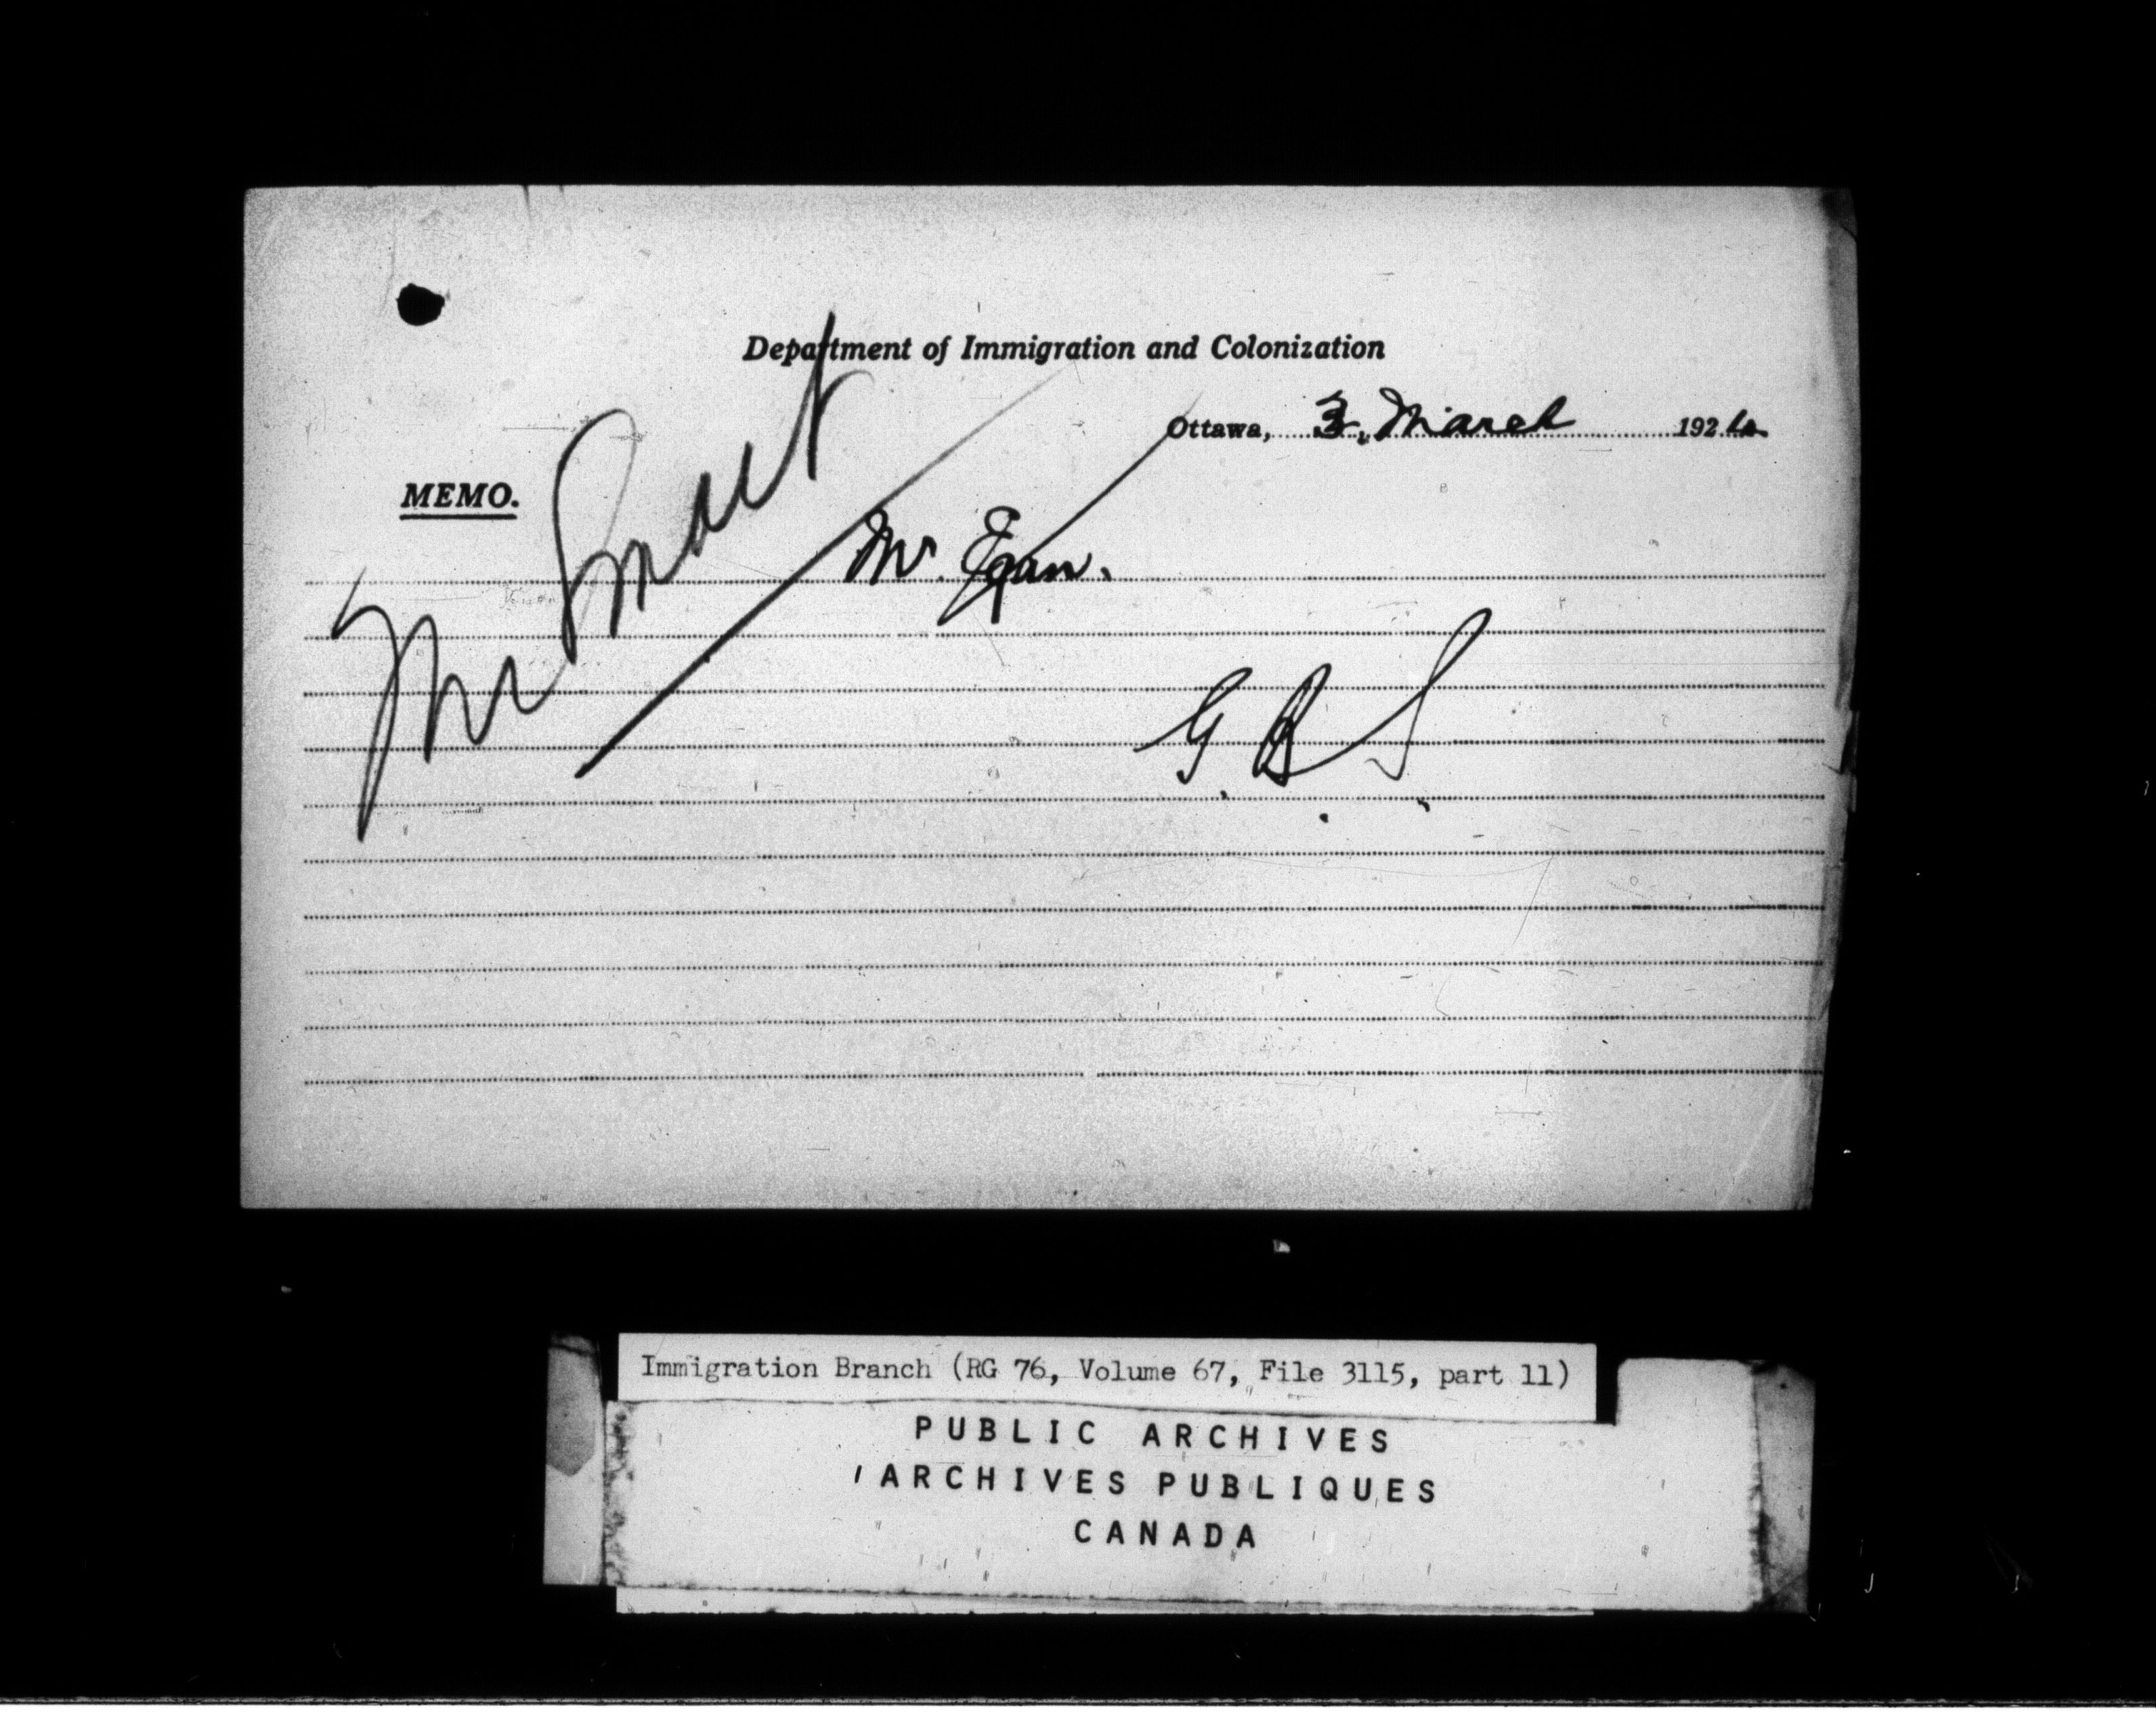 Department of Immigration and Colonization
Ottawa, 3, March 192
MEMO.
Mr Smart
Mr. Egan.
G. B. S.
Immigration Branch (RG 76, Volume 67, File 3115, part 11)
PUBLIC ARCHIVES
ARCHIVES PUBLIQUES
CANADA